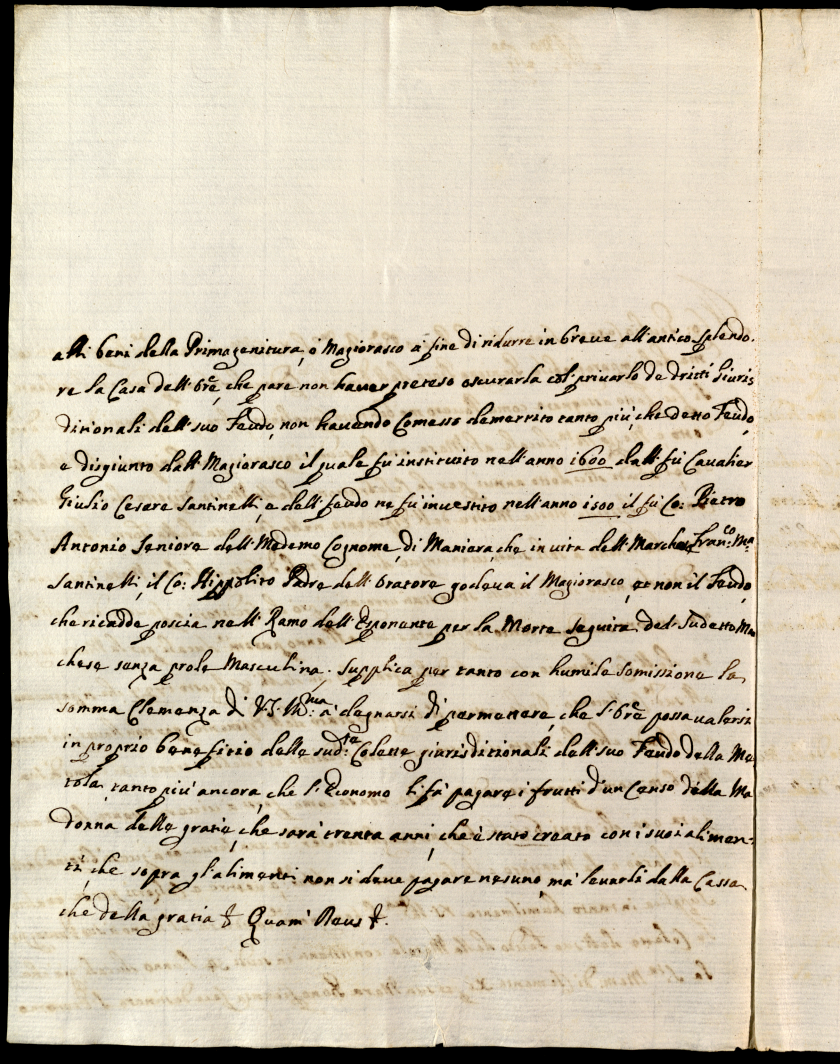 alli beni della Primagenitura, o Magiorasco a' fine di ridurre in breve all'antico splendo-
re la Casa dell'Ore, che pare non haver preteso oscurarla col privarlo de dritti Giuris
ditionali dell'suo Feudo, non havendo Comesso demerito tanto più, che detto Feudo,
e disgiunto dall'Magiorasco il quale fu instituito nell'anno 1600 dall'fu Cavalier
Giulio Cesare Santinelli, e dell'feudo ne fu investito nell'anno 1500 il fu Co: Pietro
Antonio Seniore dell'Medemo Cognome, di Maniera, che in vita dell'Marchese Fran:co Ma:
Santinelli, il Co: Hippolito Padre dell'Oratore godeva il Magiorasco, et non il Feudo,
che ricadde poscia nell'Ramo dell'Esponente per la Morte seguita del Sudetto Mar
chese senza prole Masculina. Supplica per tanto con humile somissione la
somma Clemenza di V.S. Ill:ma a' degnarsi di permettere, che l'Ore possa valersi
in proprio beneficio delle sud:te Colette giurisditionali dell'suo Feudo della Me
tola, tanto più ancora, che l'Economo li fa' pagare i frutti d'un Censo della Ma
donna delle gratie, che sara' trenta anni, che è stato creato con i suoi alimen-
ti, che sopra gl'alimenti non si deve pagare nesuno, ma' levarli dalla Cassa
che della gratia & Quam Deus &.